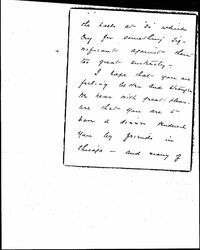 the hall at 50 which
cry for something sig-
nificant against their
too great austerity –
I hope that you are
feeling better and stronger
We hear with great pleas-
ure that you are to
have a dinner tendered
you by friends in
Chicago – and many of